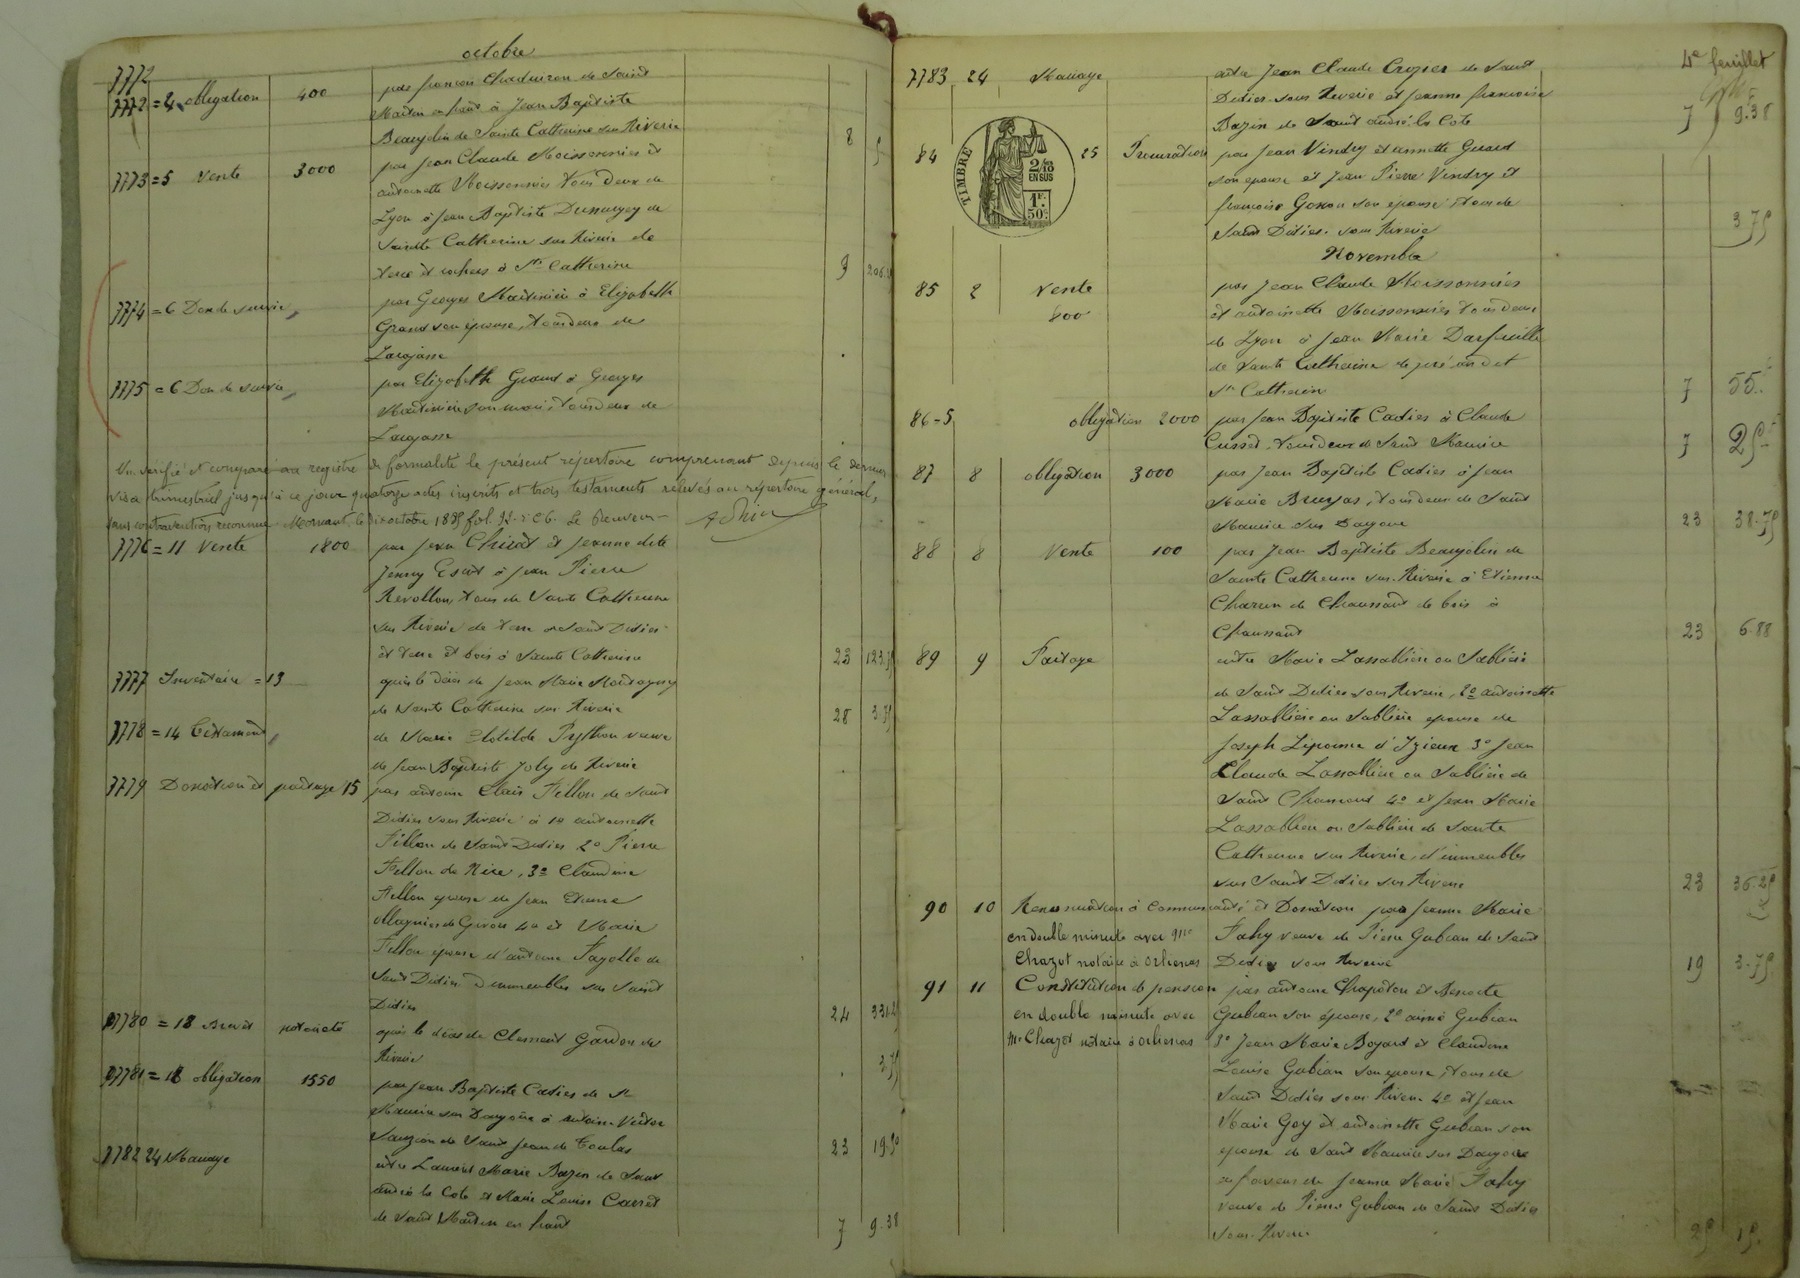 octobre
7772
7772 = 4 obligation 400 par françois Chaduiron de Saint
Martin en haut à Jean Baptiste
Beaujolin de Sainte Catherine sur Riverie 8 5
7773 = 5 Vente 3000 par Jean Claude Moissonnier et
antoinette Moissonnier tous deux de
Lyon à Jean Baptiste de
Sainte Catherine sur Riverie de
terre et rochers à Ste Catherine 9 206.
7774 = 6 Don de survie par Georges Martinière à Elizabeth
Grand son épouse, tous deux de
Larajasse
7775 = 6 Don de survie par Elizabeth Grand à Georges
Martinière son mari, tous deux de
Larajasse
Vu, vérifié et comparé au registre de formalité le présent répertoire comprenant depuis le dernier
visa trimestriel jusqu'à ce jour quatorze actes inscrits et trois testaments relevés au répertoire général,
sans contravention reconnue. Mornant, le octobre 18 fol. 92. Le Receveur
7776 = 11 Vente 1800 par Jean et Jeanne dite
Jenny à Jean Pierre
Revollon, tous de Sainte Catherine
sur Riverie de terre Saint Didier
et terre et bois à Sainte Catherine 23 123.75
7777 Inventaire = 13 après le décès de Jean Marie Montagny
de Sainte Catherine sur Riverie 28 3.75
7778 = 14 Testament de Marie Clotilde Python veuve
de Jean Baptiste Joly de Riverie
7779 Donation et partage 15 par antoine Clair Fillon de Saint
Didier sous Riverie à 1o antoinette
Fillon de Saint Didier 2o Pierre
Fillon de Rive, 3o Claudine
Fillon épouse de Jean Etienne
de Givors 4o et Marie
Fillon épouse d'antoine Fayolle de
Saint Didier d'immeubles sur Saint
Didier 24 331.25
7780 = 18 Brevet notoriété après le décès de Clement Gardon de
Riverie 3.75
7781 = 18 obligation 1550 par Jean Baptiste Cadier de St
Maurice sur Dargoire à antoine Victor
de Saint Jean de Toulas 23 19.50
7782 24 Mariage entre Laurent Marie Bazin de Saint
andré la Cote et Marie Louise
de Saint Martin en haut 7 9.38
4e feuillet
7783 24 Mariage entre Jean Claude Crozier de Saint
Didier sous Riverie et Jeanne françoise
Bazin de Saint andré la Cote 7 9.38
84 25 Procuration par Jean Vindry et annette
son épouse et Jean Pierre Vindry et
françoise Gonon son épouse tous de
Saint Didier sous Riverie 3.75
TIMBRE
2/10
EN SUS
1F.
50c.
Novembre
85 2 Vente par Jean Claude Moissonnier
800 et antoinette Moissonnier tous deux
de Lyon à Jean Marie
de Sainte Catherine de pré audit
Ste Catherine 7 55.
86 = 5 obligation 2000 par Jean Baptiste Cadier à Claude
Cusset, tous deux de Saint Maurice 7 25
87 8 obligation 3000 par Jean Baptiste Cadier à Jean
Marie Bruyas, tous deux de Saint
Maurice sur Dargoire 23 38.75
88 8 Vente 100 par Jean Baptiste Beaujolin de
Sainte Catherine sur Riverie à Etienne
Charvin de Chaussant de bois à
Chaussant 23 6.88
89 9 Partage entre Marie Lassablière ou Sablière
de Saint Didier sous Riverie, 2o antoinette
Lassablière ou Sablière épouse de
Joseph d'Izieux 3o Jean
Claude Lassablière ou Sablière de
Saint Chamond 4o et Jean Marie
Lassablière ou Sablière de Sainte
Catherine sur Riverie, d'immeubles
sur Saint Didier sur Riverie 23 36.25
90 10 Renonciation à communauté et Donation par Jeanne Marie
en double minute avec Me Fahy veuve de Pierre Gubian de Saint
Chazot notaire à Orliénas Didier sous Riverie 19 3.75
91 11 Constitution de pension par antoine Chapoton et Benoite
en double minute avec Gubian son épouse, 2o aimé Gubian
Me Chazot notaire à Orliénas 3o Jean Marie Boyard et Claudine
Louise Gubian son épouse, tous de
Saint Didier sous Riverie 4o et Jean
Marie Goy et antoinette Gubian son
épouse de Saint Maurice sur Dargoire
en faveur de Jeanne Marie Fahy
veuve de Pierre Gubian de Saint Didier
sous Riverie 25 15.